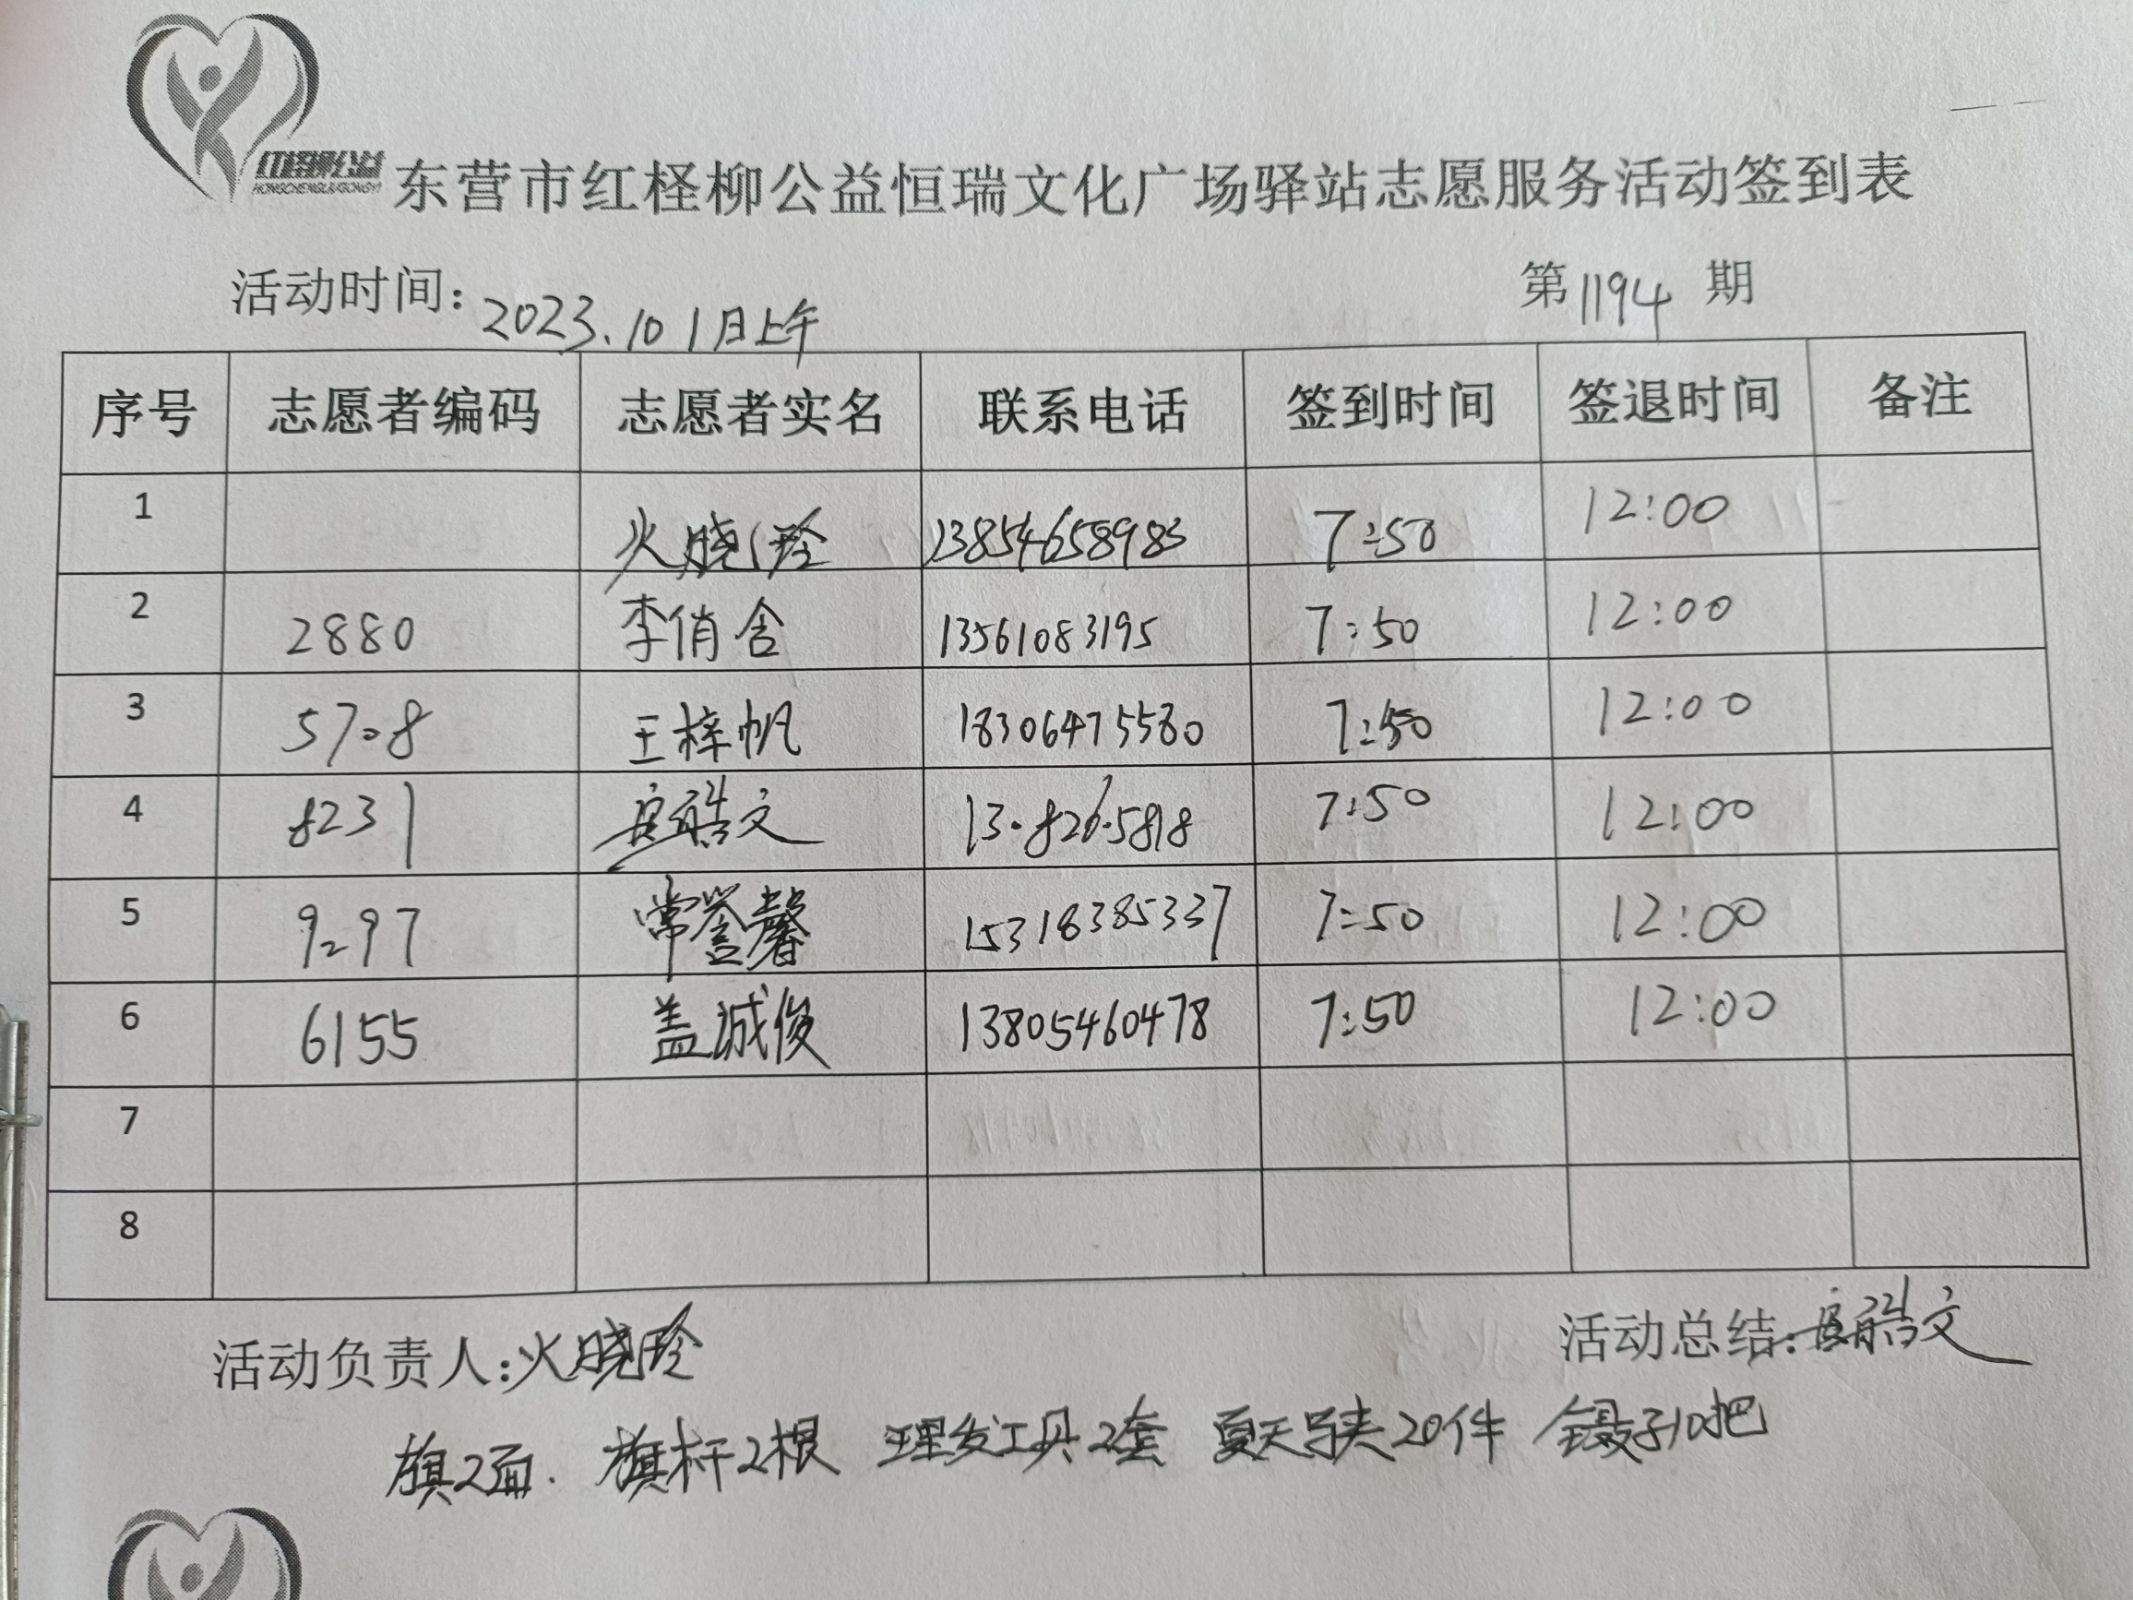 红柽柳公益
HONGCHENGLIUGONGYI
东营市红柽柳公益恒瑞文化广场驿站志愿服务活动签到表
活动时间：2023.10 1日上午 第1194期
序号 志愿者编码 志愿者实名 联系电话 签到时间 签退时间 备注
1 火晓玲 13854658983 7:50 12:00
2 2880 李俏含 13561083195 7:50 12:00
3 5708 王梓帆 18306475580 7:50 12:00
4 8231 皓文 7:50 12:00
5 9297 常誉馨 15318385337 7:50 12:00
6 6155 盖诚俊 13805460478 7:50 12:00
7
8
活动负责人：火晓玲 活动总结：皓文
旗2面. 旗杆2根 理发工具2套 夏天马夹20件 镊子10把